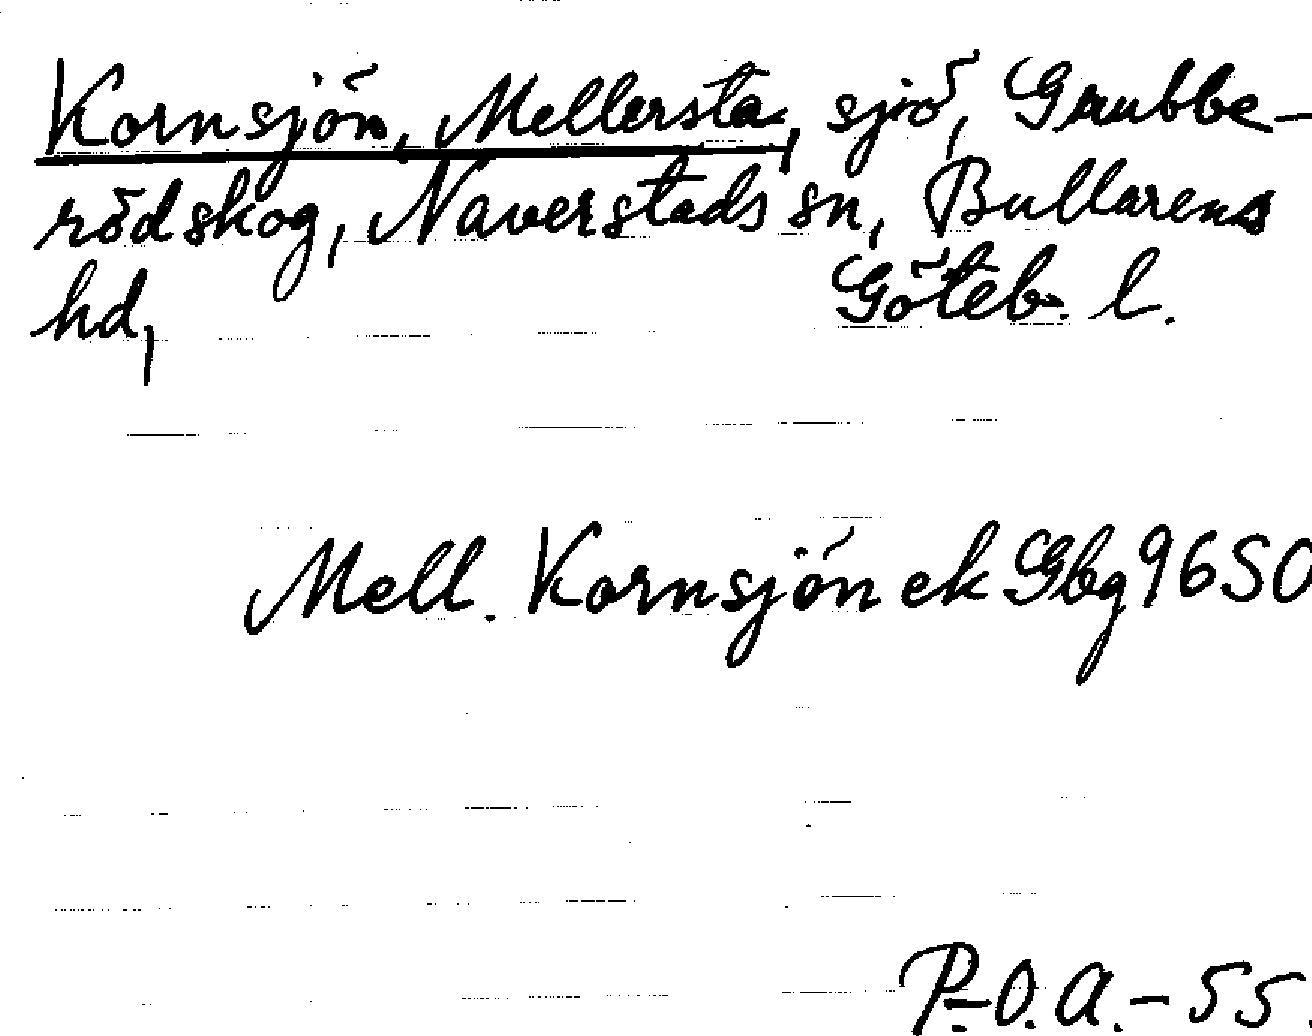 Kornsjön, Mellersta, sjö, Grubbe-
rödskog, Naverstads sn, Bullarens
hd, Göteb. l.
Mell. Kornsjön ek Gbg 9650
P.-O. A. - 55.